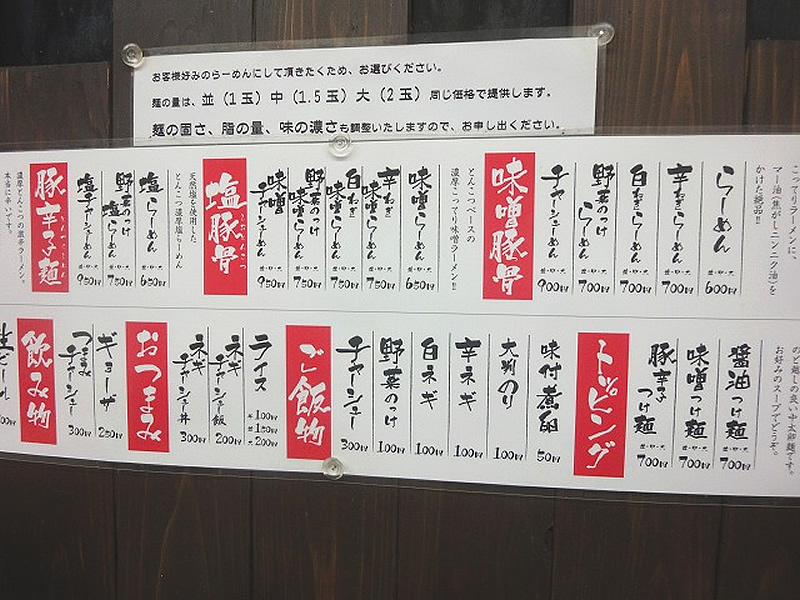 お客様好みのらーめんにして頂きたくため、お選びください。
麺の量は、並（1玉）中（1.5玉）大（2玉）同じ価格で提供します。
麺の固さ、脂の量、味の濃さも調整いたしますので、お申し出ください。
こってりラーメンに、
マー油（焦がしニンニク油）を
かけた絶品!!
らーめん
並・中・大 600円
辛ねぎらーめん
並・中・大 700円
白ねぎらーめん
並・中・大 700円
野菜のっけらーめん
並・中・大 700円
チャーシューめん
並・中・大 900円
味噌豚骨
とんこつベースの
濃厚こってり味噌ラーメン!!
味噌らーめん
並・中・大 650円
辛ねぎ味噌らーめん
並・中・大 750円
白ねぎ味噌らーめん
並・中・大 750円
野菜のっけ味噌らーめん
並・中・大 750円
味噌チャーシューめん
並・中・大 950円
塩豚骨
しおとんこつ
天然塩を使用した
とんこつ濃厚塩らーめん
塩らーめん
並・中・大 650円
野菜のっけ塩らーめん
並・中・大 750円
塩チャーシューめん
並・中・大 950円
豚辛子麺
濃厚とんこつの激辛ラーメン。
本当に辛いです。
のど越しの良い中太卵麺です。
お好みのスープでどうぞ。
醤油つけ麺
並・中・大 700円
味噌つけ麺
並・中・大 700円
豚辛子つけ麺
並・中・大 700円
トッピング
味付煮卵
50円
大判のり
100円
辛ネギ
100円
白ネギ
100円
野菜のっけ
100円
チャーシュー
300円
ご飯物
ライス
半 100円
並 150円
大 200円
ネギチャーシュー飯
200円
ネギチャーシュー丼
300円
おつまみ
ギョーザ
250円
つまみチャーシュー
300円
飲み物
生ビール